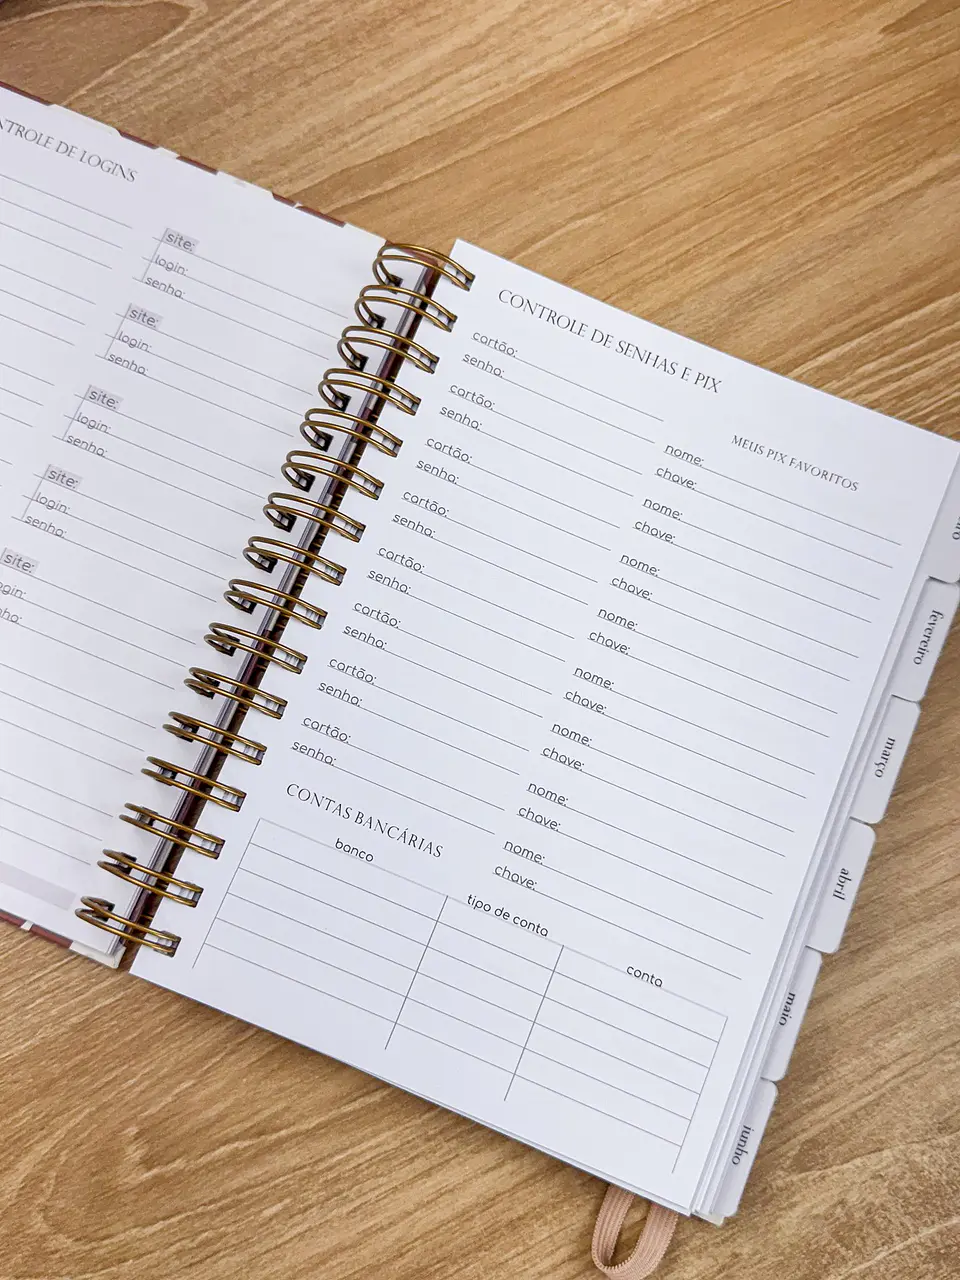 NTROLE DE LOGINS
site:
login:
senha:
site:
login:
senha:
site:
login:
senha:
site:
login:
senha:
site:
ogin:
nha:
CONTROLE DE SENHAS E PIX
cartão:
senha:
cartão:
senha:
cartão:
senha:
cartão:
senha:
cartão:
senha:
cartão:
senha:
cartão:
senha:
cartão:
senha:
MEUS PIX FAVORITOS
nome:
chave:
nome:
chave:
nome:
chave:
nome:
chave:
nome:
chave:
nome:
chave:
nome:
chave:
nome:
chave:
CONTAS BANCÁRIAS
banco
tipo de conta
conta
eiro
fevereiro
março
abril
maio
junho